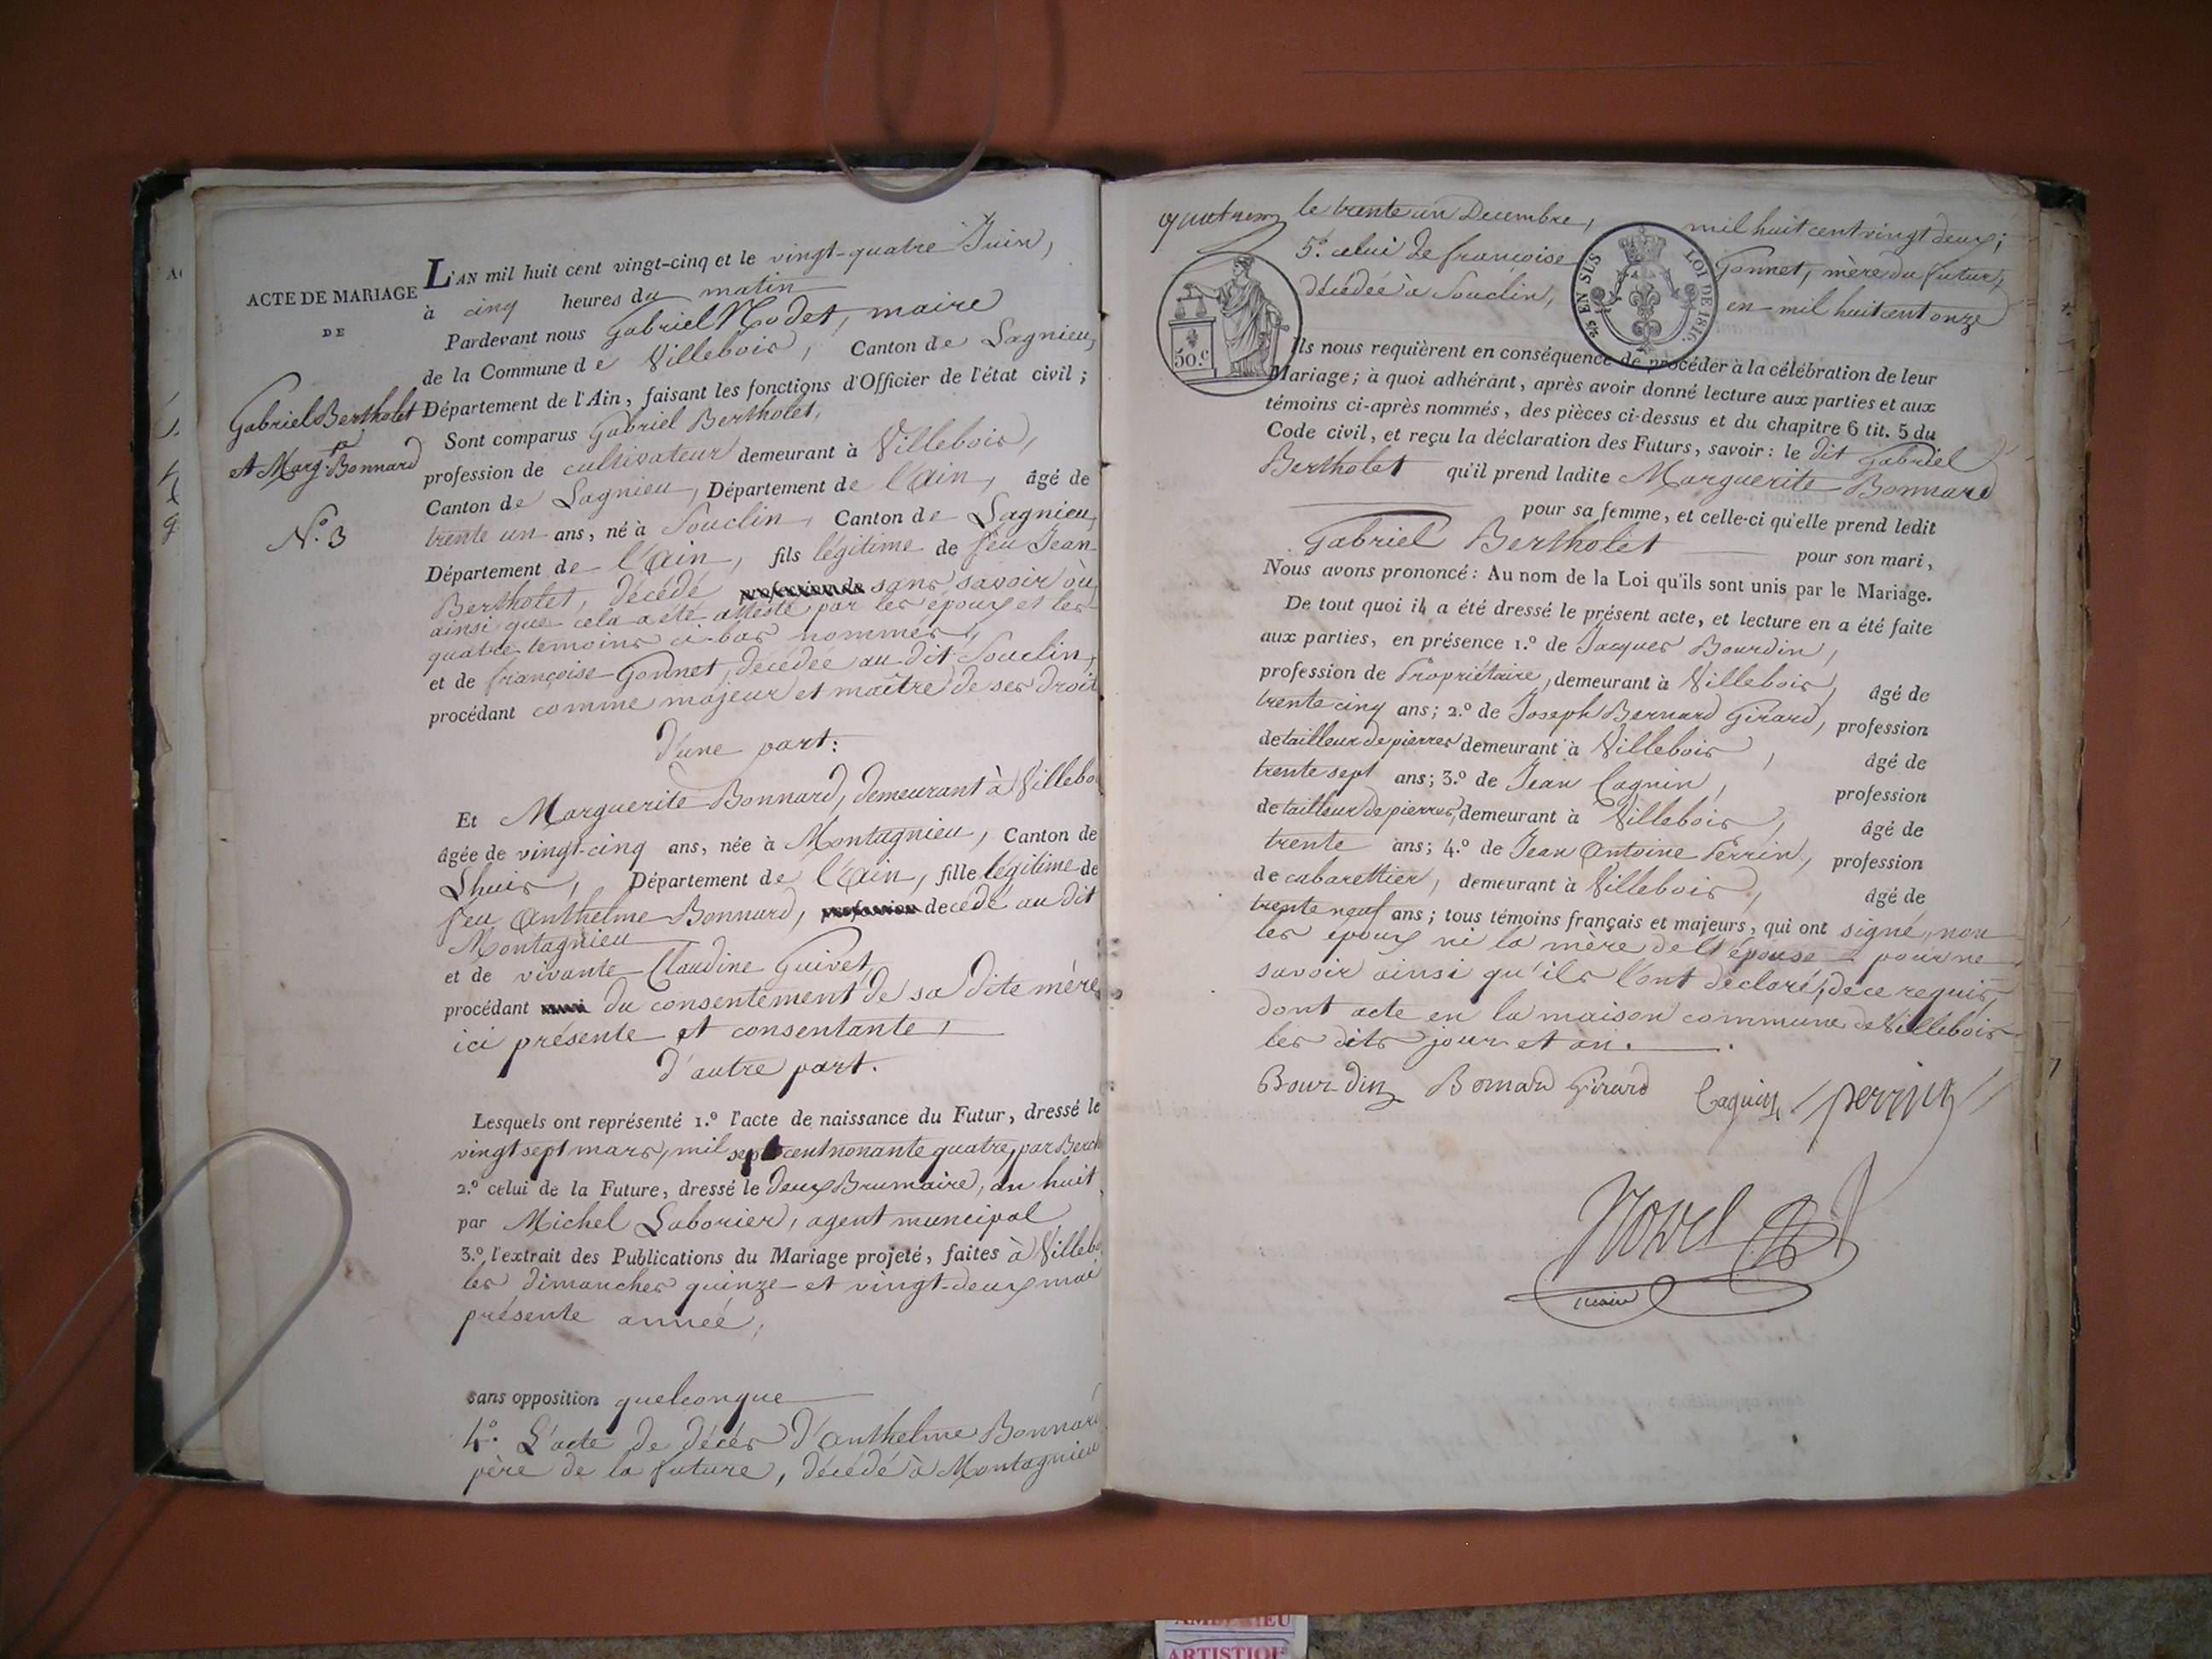 ACTE DE MARIAGE
DE
Gabriel Bertholet
et Marg.te Bonnard
N.o 3
L'AN mil huit cent vingt-cinq et le vingt-quatre Juin,
à cinq heures du matin
Pardevant nous Gabriel Nodet, maire
de la Commune de Villebois, Canton de Lagnieu,
Département de l'Ain, faisant les fonctions d'Officier de l'état civil ;
Sont comparus Gabriel Bertholet,
profession de cultivateur demeurant à Villebois,
Canton de Lagnieu, Département de l'Ain, âgé de
trente un ans, né à Souclin, Canton de Lagnieu,
Département de l'Ain, fils légitime de feu Jean
Bertholet, décédé sans savoir où,
ainsi que cela a été attesté par les époux et les
quatre temoins ci-bas nommés,
et de françoise Gonnet, décédée au dit Souclin,
procédant comme majeur et maître de ses droit
d'une part:
Et Marguerite Bonnard, demeurant à Villebo
âgée de vingt-cinq ans, née à Montagnieu, Canton de
Lhuis, Département de l'Ain, fille légitime de
feu Anthelme Bonnard, decédé au dit
Montagnieu
et de vivante Claudine Guivet
procédant du consentement de sa dite mère
ici présente et consentante,
d'autre part.
Lesquels ont représenté 1.o l'acte de naissance du Futur, dressé le
vingt sept mars, mil sept cent nonante quatre, par Berch
2.o celui de la Future, dressé le deux Brumaire, an huit,
par Michel Laborier, agent muncipal
3.o l'extrait des Publications du Mariage projeté, faites à Villebo
les dimanches quinze et vingt-deux mai
présente année;
sans opposition quelconque
4.o L'acte de décès d'anthelme Bonnard
père de la future, décédé à Montagnieu
le trente un Decembre, mil huit cent vingt deux;
5.o celui de francoise Gonnet, mère du futur,
décédée à Souclin, en mil huit cent onze
50.c
25 EN SUS LOI DE 1816.
Ils nous requièrent en conséquence de procéder à la célébration de leur
Mariage ; à quoi adhérant, après avoir donné lecture aux parties et aux
témoins ci-après nommés, des pièces ci-dessus et du chapitre 6 tit. 5 du
Code civil, et reçu la déclaration des Futurs, savoir : le dit Gabriel
Bertholet qu'il prend ladite Marguerite Bonnard
pour sa femme, et celle-ci qu'elle prend ledit
Gabriel Bertholet pour son mari,
Nous avons prononcé : Au nom de la Loi qu'ils sont unis par le Mariage.
De tout quoi il a été dressé le présent acte, et lecture en a été faite
aux parties, en présence 1.o de Jacques Bourdin,
profession de Propriétaire, demeurant à Villebois, âgé de
trente cinq ans ; 2.o de Joseph Bernard Girard, profession
de tailleur de pierres demeurant à Villebois, âgé de
trente sept ans ; 3.o de Jean Cagnin, profession
de tailleur de pierres, demeurant à Villebois, âgé de
trente ans ; 4.o de Jean Antoine Perrin, profession
de cabarettier, demeurant à Villebois, âgé de
trente neuf ans ; tous témoins français et majeurs, qui ont signé, non
les epoux ni la mère de l'épouse pour ne
savoir ainsi qu'ils l'ont déclaré, de ce requis,
dont acte en la maison commune de Villebois
les dits jour et an.
Bourdin Bernard Girard Cagnin perrin
Nodet
maire
ARTISTIQUE